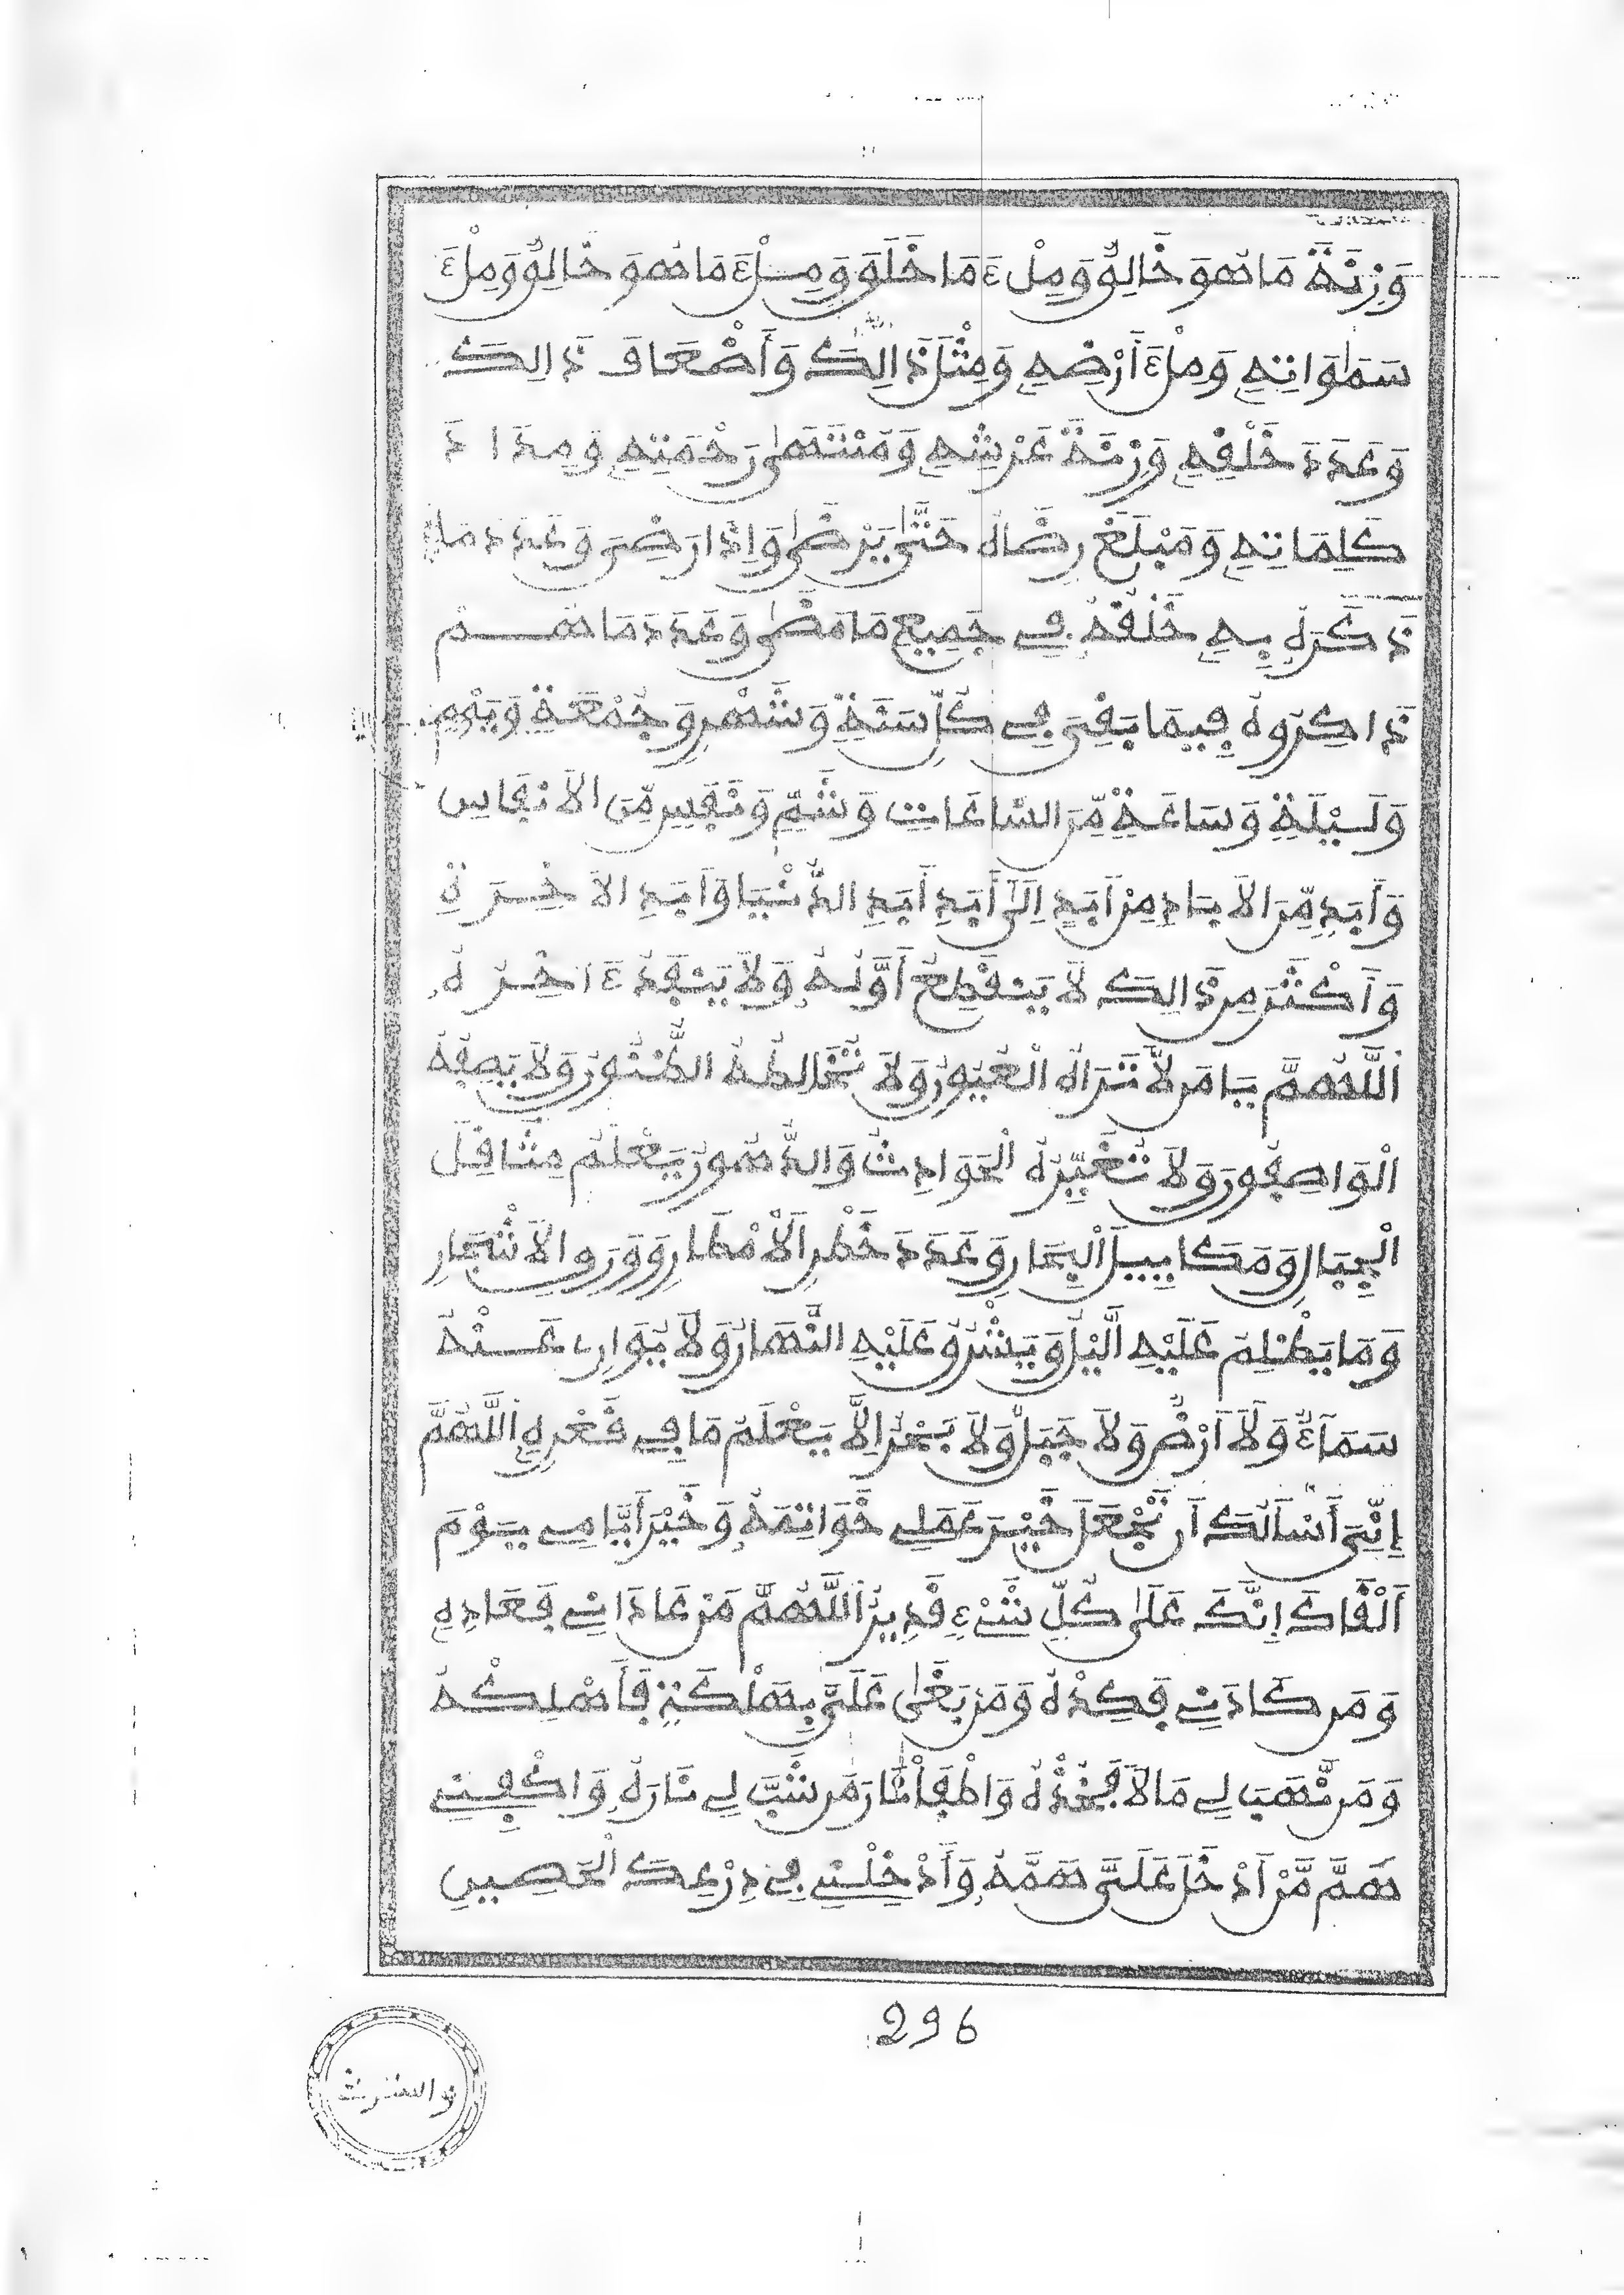 وَزِنَةَ مَا هُوَ خَالِقٌ وَمِلْءَ مَا خَلَقَ وَمِلْءَ مَا هُوَ خَالِقٌ وَمِلْءَ
سَمَاوَاتِهِ وَمِلْءَ أَرْضِهِ وَمِثْلَ ذَالِكَ وَأَضْعَافَ ذَالِكَ
وَعَدَدَ خَلْقِهِ وَزِنَةَ عَرْشِهِ وَمُنْتَهَىٰ رَحْمَتِهِ وَمِدَادَ
كَلِمَاتِهِ وَمَبْلَغَ رِضَاهُ حَتَّىٰ يَرْضَىٰ وَإِذَا رَضِيَ وَعَدَدَ مَا
ذَكَرَهُ بِهِ خَلْقُهُ فِي جَمِيعِ مَا مَضَىٰ وَعَدَدَ مَا هُمْ
ذَاكِرُوهُ فِيمَا بَقِيَ فِي كُلِّ سَنَةٍ وَشَهْرٍ وَجُمْعَةٍ وَيَوْمٍ
وَلَيْلَةٍ وَسَاعَةٍ مِّنَ السَّاعَاتِ وَشَمٍّ وَنَفَسٍ مِّنَ الْأَنْفَاسِ
وَأَبَدٍ مِّنَ الْآبَادِ مِنْ أَبَدٍ إِلَىٰ أَبَدٍ أَبَدِ الدُّنْيَا وَأَبَدِ الْآخِرَةِ
وَأَكْثَرَ مِن ذَالِكَ لَا يَنقَطِعُ أَوَّلُهُ وَلَا يَنفَدُ ءَاخِرُهُ
اَللَّهُمَّ يَا مَن لَّا تَرَاهُ الْعُيُونُ وَلَا تُخَالِطُهُ الظُّنُونُ وَلَا يَصِفُهُ
الْوَاصِفُونَ وَلَا تُغَيِّرُهُ الْحَوَادِثُ وَالدُّهُورُ يَعْلَمُ مَثَاقِلَ
الْجِبَالِ وَمَكَايِيلَ الْبِحَارِ وَعَدَدَ قَطْرِ الْأَمْطَارِ وَوَرَقِ الْأَشْجَارِ
وَمَا يَظْلِمُ عَلَيْهِ الَّيْلُ وَيَشْرُقُ عَلَيْهِ النَّهَارُ وَلَا يُوَارِي عَنْهُ
سَمَاءٌ وَلَا أَرْضٌ وَلَا جَبَلٌ وَلَا بَحْرٌ إِلَّا يَعْلَمُ مَا فِي قَعْرِهِ اَللَّهُمَّ
إِنِّي أَسْأَلُكَ أَن تَجْعَلَ خَيْرَ عَمَلِي خَوَاتِمَهُ وَخَيْرَ أَيَّامِي يَوْمَ
أَلْقَاكَ إِنَّكَ عَلَىٰ كُلِّ شَيْءٍ قَدِيرٌ اَللَّهُمَّ مَنْ عَادَانِي فَعَادِهِ
وَمَن كَادَنِي فَكِدْهُ وَمَن بَغَىٰ عَلَيَّ بِهَلْكَةٍ فَأَهْلِكْهُ
وَمَن نَّهَبَ لِي مَالًا فَخُذْهُ وَاطْفَأْ نَارَ مَن شَبَّ لِي نَارَهُ وَاكْفِنِي
هَمَّ مَّنْ أَدْخَلَ عَلَيَّ هَمَّهُ وَأَدْخِلْنِي فِي دِرْعِكَ الْحَصِينِ
296